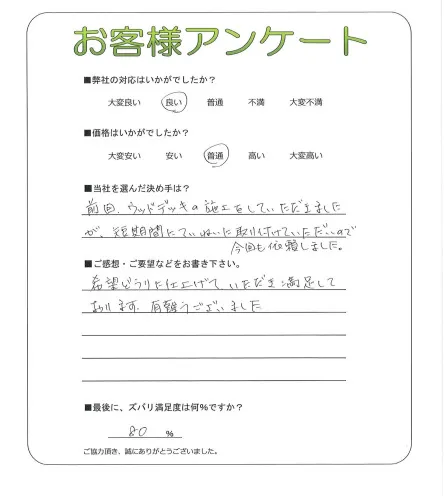 お客様アンケート
■弊社の対応はいかがでしたか？
大変良い 良い 普通 不満 大変不満
■価格はいかがでしたか？
大変安い 安い 普通 高い 大変高い
■当社を選んだ決め手は？
前回、ウッドデッキの施工をしていただきました
が、短期間にていねいに取り付けていただいので
今回も依頼しました。
■ご感想・ご要望などをお書き下さい。
希望どうりに仕上げて いただき満足して
おります。有難うございました
■最後に、ズバリ満足度は何％ですか？
80 ％
ご協力頂き、誠にありがとうございました。